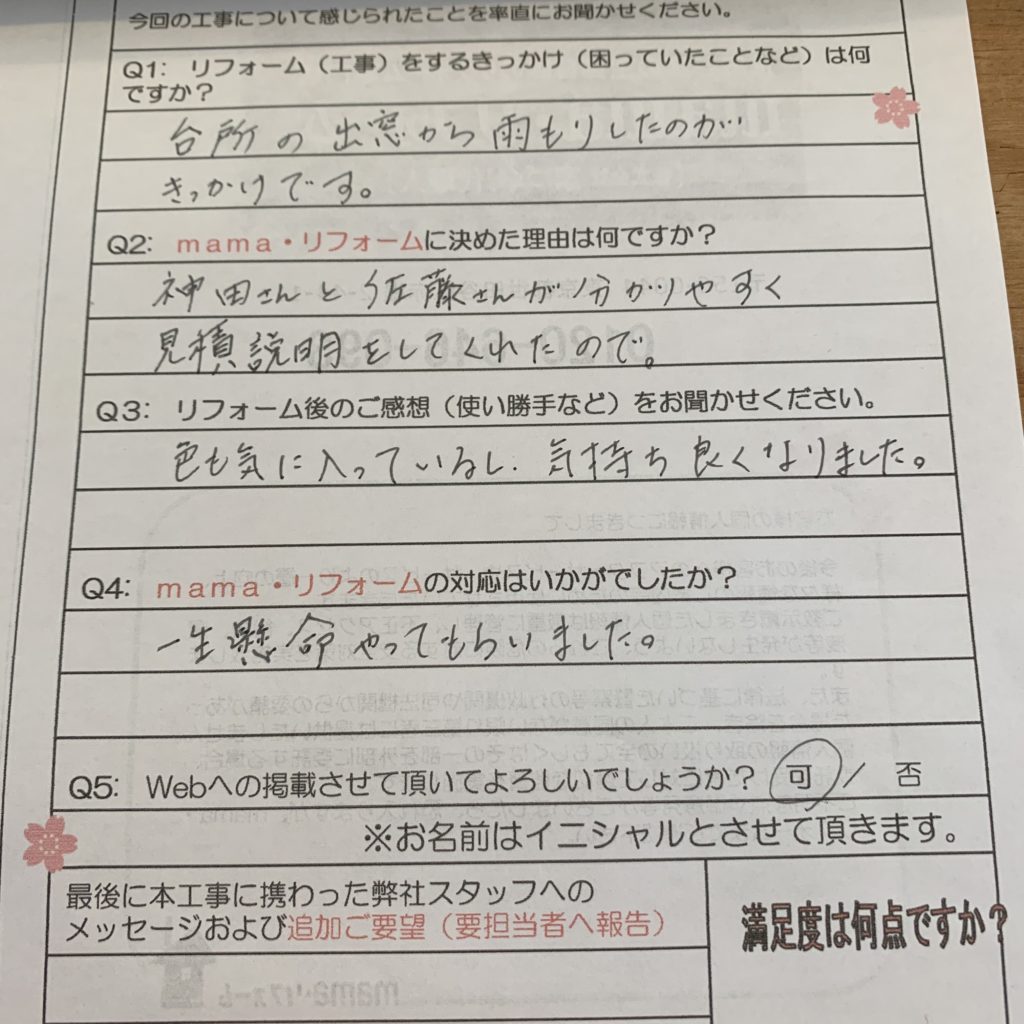 今回の工事について感じられたことを率直にお聞かせください。
Q1: リフォーム(工事)をするきっかけ(困っていたことなど)は何
ですか?
台所の出窓から雨もりしたのが
きっかけです。
Q2: mama・リフォームに決めた理由は何ですか?
神田さんと佐藤さんが分かりやすく
見積説明をしてくれたので。
Q3: リフォーム後のご感想(使い勝手など)をお聞かせください。
色も気に入っているし、気持ち良くなりました。
Q4: mama・リフォームの対応はいかがでしたか?
一生懸命やってもらいました。
Q5: Webへの掲載させて頂いてよろしいでしょうか? 可 / 否
※お名前はイニシャルとさせて頂きます。
最後に本工事に携わった弊社スタッフへの
メッセージおよび追加ご要望(要担当者へ報告)
満足度は何点ですか?